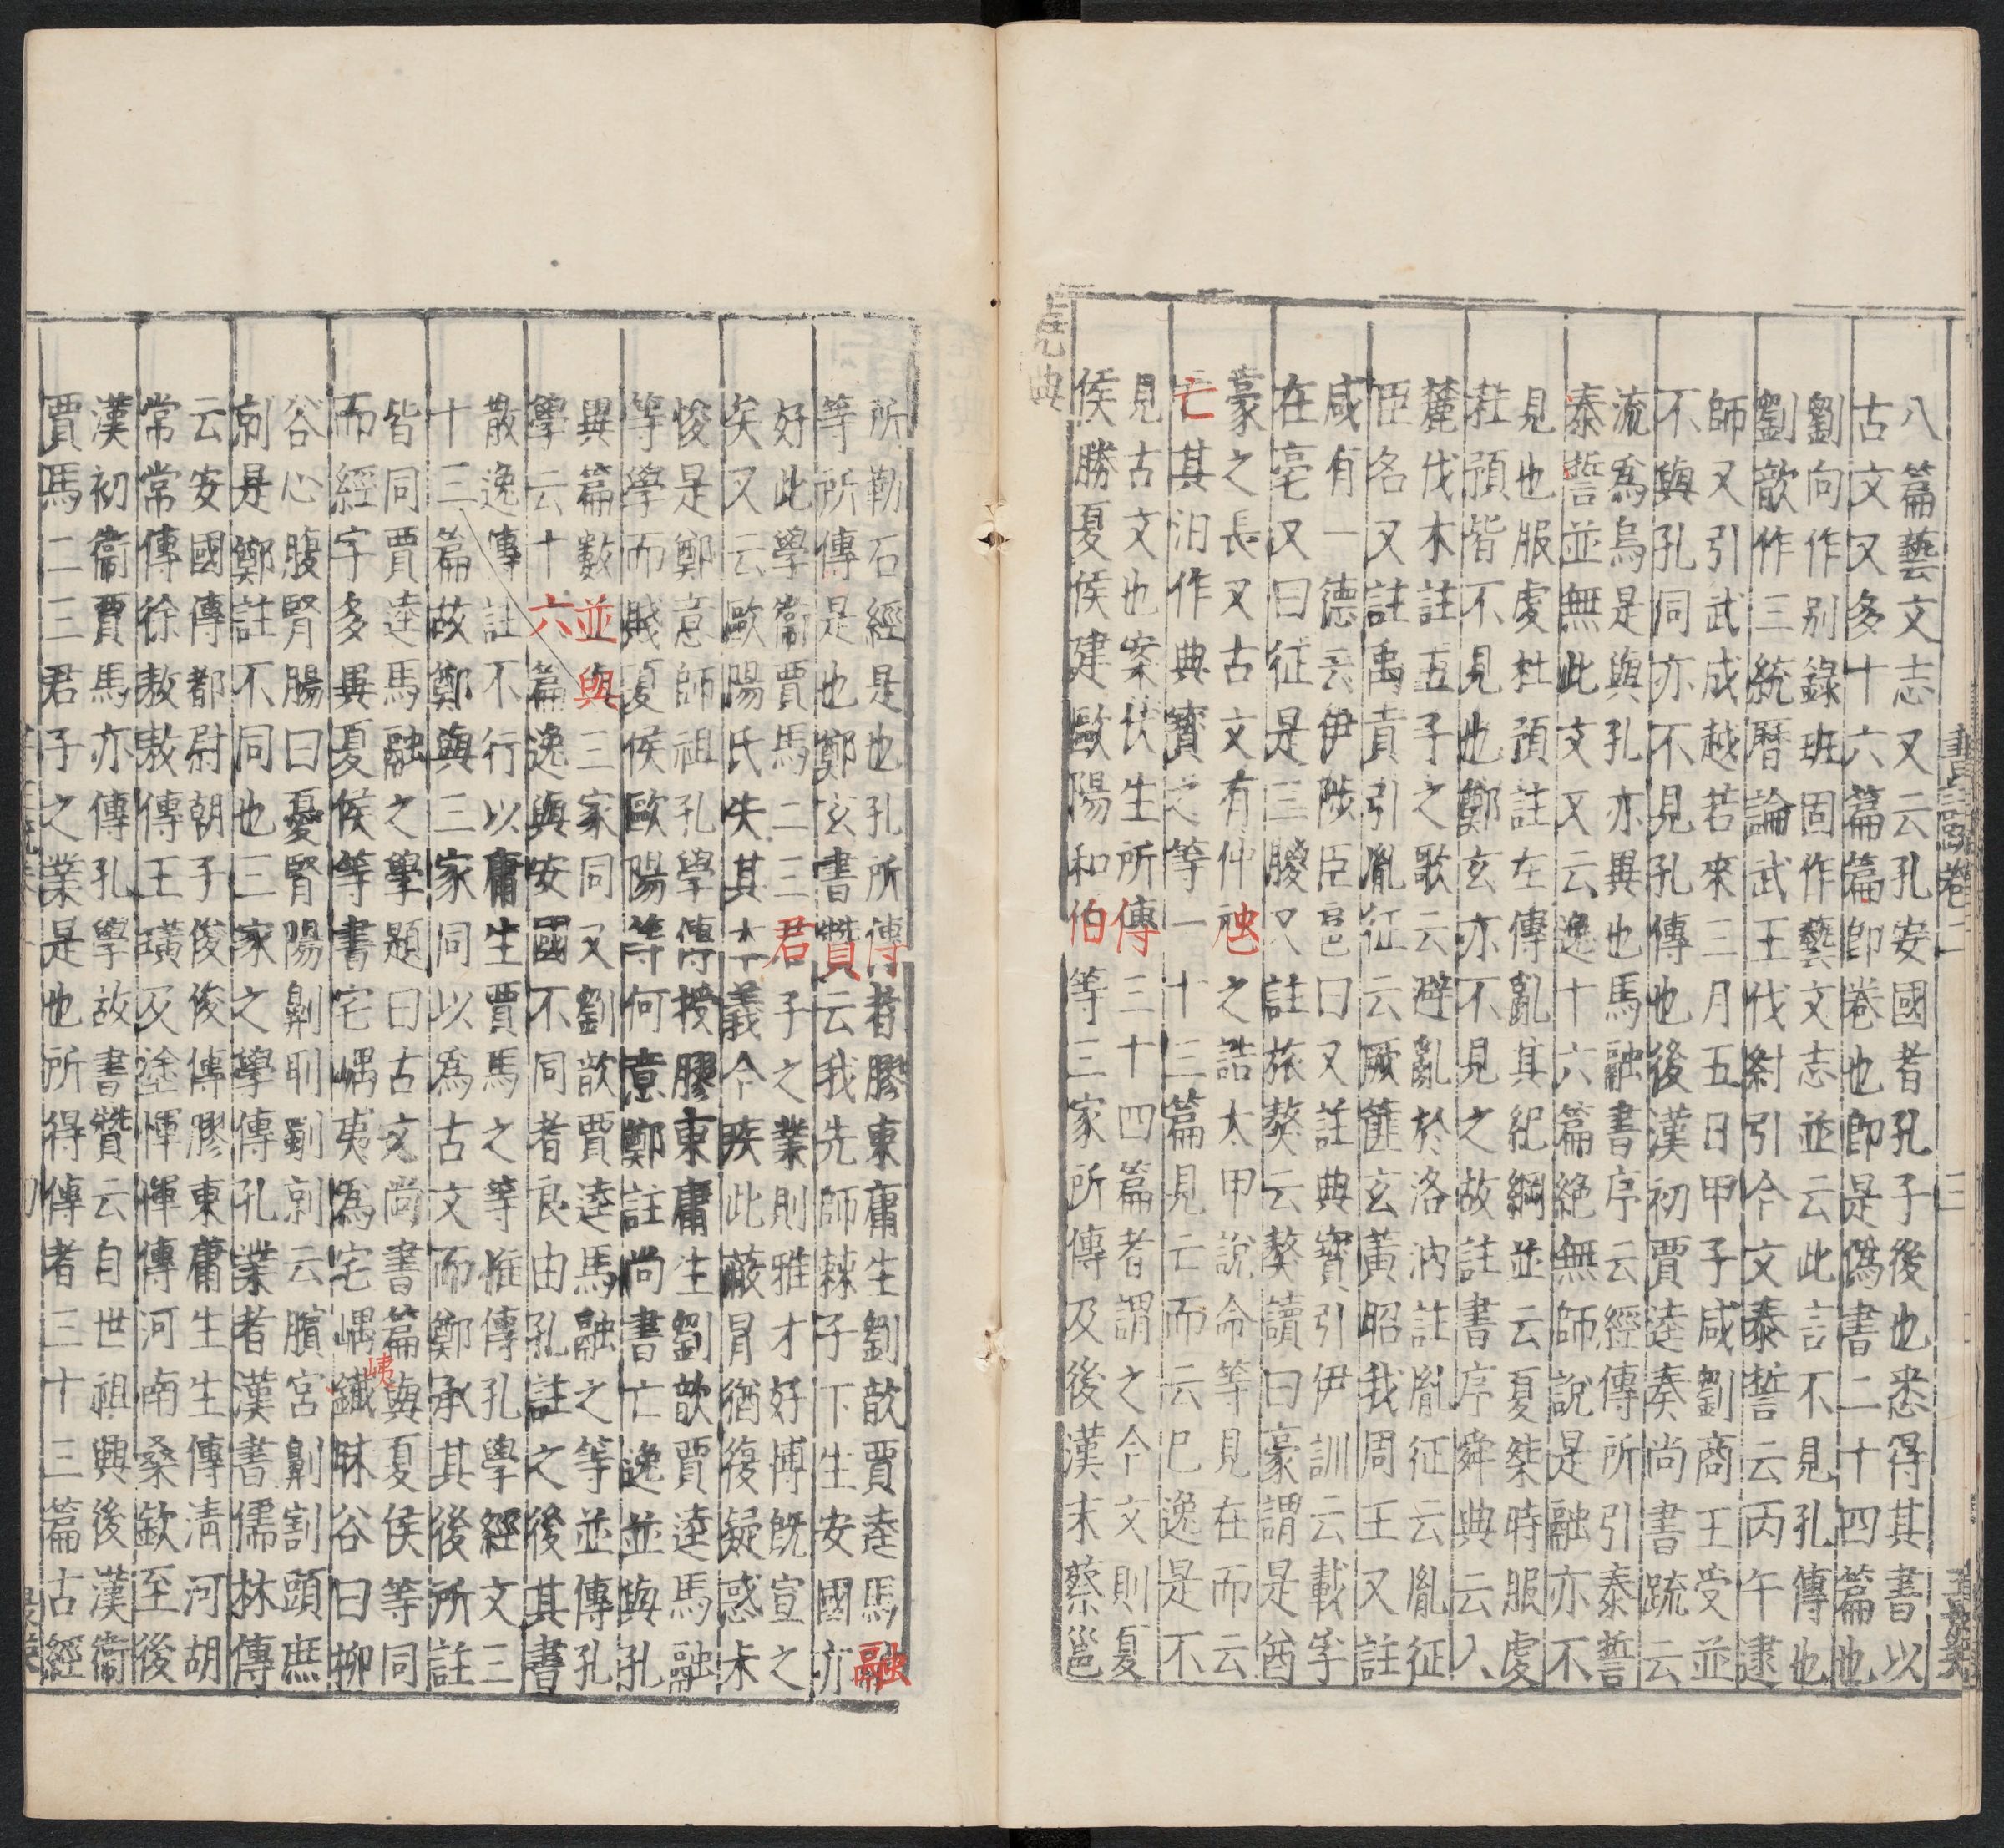 八篇藝文志又云孔安國者孔子後也悉得其書以
古文又多十六篇篇即卷也即是僞書二十四篇也
劉向作别錄班固作藝文志並云此言不見孔傳也
劉歆作三統曆論武王伐紂引今文泰誓云丙午逮
師又引武成越若來三月五日甲子咸劉商王受並
不與孔同亦不見孔傳也後漢初賈逵奏尚書䟽云
流爲烏是與孔亦異也馬融書序云經傳所引泰誓
泰誓並無此文又云逸十六篇絶無師說是融亦不
見也服䖍杜預註左傳亂其紀綱並云夏桀時服䖍
杜預皆不見也鄭玄亦不見之故註書序舜典云入
麓伐木註五子之歌云避亂於洛汭註胤征云胤征
臣名又註禹貢引胤征云厥篚玄黃昭我周王又註
咸有一德云伊陟臣扈曰又註典寳引伊訓云載孚
在亳又曰征是三朡又註旅獒云獒讀曰豪謂是酋
豪之長又古文有仲虺之誥太甲說命等見在而云
亡其汨作典寳之等一十三篇見亡而云已逸是不
見古文也案伏生所傳三十四篇者謂之今文則夏
侯勝夏侯建歐陽和伯等三家所傳及後漢末蔡邕
堯典
書註疏卷二
三
所勒石經是也孔所傳者膠東庸生劉歆賈逵馬融
等所傳是也鄭玄書贊云我先師棘子下生安國亦
好此學衞賈馬二三君子之業則雅才好博既宣之
矣又云歐陽氏失其本義今疾此蔽冒猶復疑惑未
悛是鄭意師祖孔學傳授膠東庸生劉歆賈逵馬融
等學而賤夏侯歐陽等何意鄭註尚書亡逸並與孔
異篇數並與三家同又劉歆賈逵馬融之等並傳孔
學云十六篇逸與安國不同者良由孔註之後其書
散逸傳註不行以庸生賈馬之等惟傳孔學經文三
十三篇故鄭與三家同以爲古文而鄭承其後所註
皆同賈逵馬融之學題曰古文尚書篇與夏侯等同
而經字多異夏侯等書宅嵎夷爲宅嵎鐵昧谷曰柳
峓
谷心腹腎腸曰憂腎陽劓刵劅剠云臏宮劓割頭庶
剠是鄭註不同也三家之學傳孔業者漢書儒林傳
云安國傳都尉朝子俊俊傳膠東庸生生傳清河胡
常常傳徐敖敖傳王璜及塗惲惲傳河南桑欽至後
漢初衞賈馬亦傳孔學故書贊云自世祖興後漢衞
賈馬二三君子之業是也所得傳者三十三篇古經